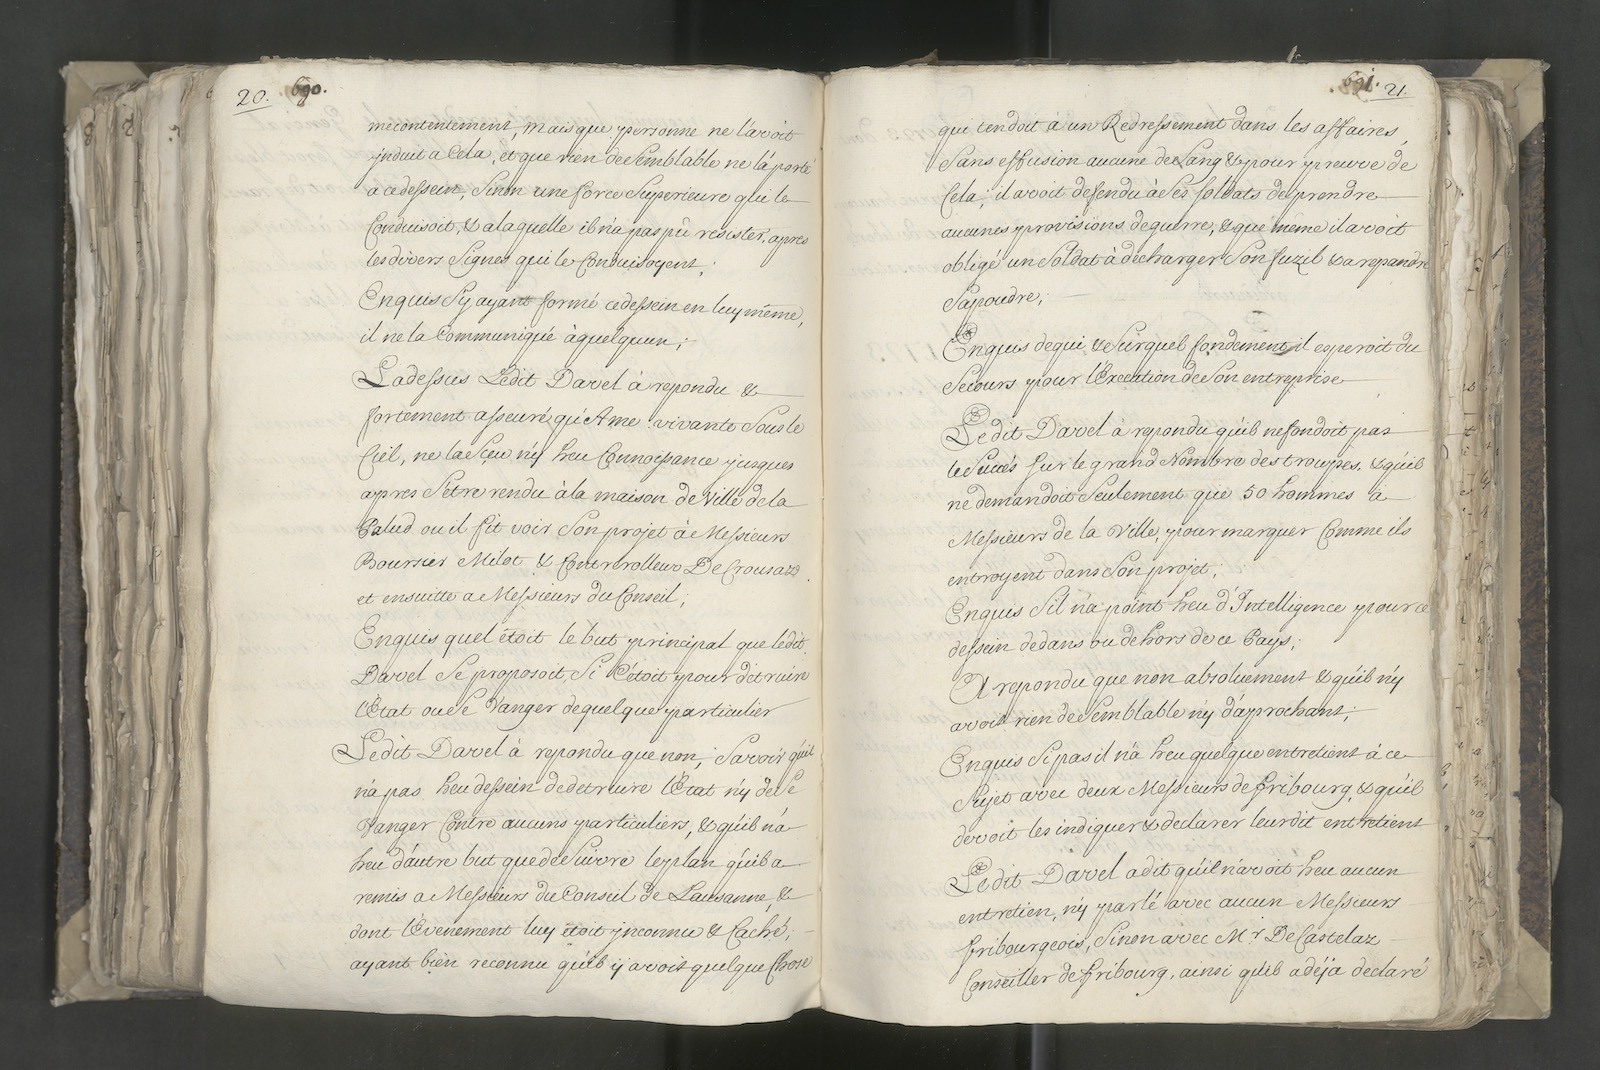 20. 690.
mécontentement, mais que personne ne l'avoit
jnduit a Cela, et que rien de Semblable ne la porté
a ce dessein, Sinon une force Superieure qui le
Conduisoit, & a laquelle il n'a pas pû resister, apres
les divers Signes qui le Conduisoyent;
Enquis Sy ayant formé ce dessein en luy même,
il ne la Communiqué à quelquun;
Ladessus Ledit Davel à repondu &
fortement asseuré qu'Ame vivante Sous le
Ciel, ne la Sçeu n'y heu Connoissance jusques
apres S'etre rendu à la maison de Ville de la
Palud ou il fit voir Son projet à Messieurs
Boursier Milot & Conterolleur De Crousaz
et ensuitte a Messieurs du Conseil;
Enquis quel êtoit le but principal que ledit
Davel Se proposoit, Si C'étoit pour détruire
l'Etat ou Se Vanger de quelque particulier
Ledit Davel à repondu que non, Savoir qu'il
n'a pas heu dessein de detruire l'Etat n'y de Se
Vanger Contre aucuns particuliers, & qu'il n'a
heu d'autre but que de Suivre le plan qu'il a
remis a Messieurs du Conseil de Lausanne, &
dont l'Evenement luy étoit jnconnu & Caché;
ayant bien reconnu qu'il y avoit quelque Chose
691. 21.
qui tendoit à un Redressement dans les affaires,
Sans effusion aucune de Sang & pour preuve de
Cela, il avoit defendu à Ses Soldats de prendre
aucunes provisions de guerre, & que même il avoit
obligé un Soldat à décharger Son fuzil & a repandre
Sa poudre;
Enquis de qui & Sur quel fondement il esperoit du
Secours pour l'Execution de Son entreprise
Ledit Davel à repondu qu'il ne fondoit pas
le Succés Sur le grand Nombre des troupes, & qu'il
ne demandoit Seulement que 50 hommes à
Messieurs de la Ville, pour marquer Comme ils
entroyent dans Son projet;
Enquis S'il n'a point heu d'Intelligence pour ce
dessein dedans ou dehors de ce Pays;
A repondu que non absoluement & qu'il n'y
avoit rien de Semblable n'y d'aprochant;
Enquis Si pas il n'a heu quelque entretient à ce
Sujet avec deux Messieurs de fribourg, & qu'il
devoit les indiquer & declarer leurdit entretient
Ledit Davel a dit qu'il n'avoit heu aucun
entretien, n'y parlé avec aucun Messieurs
fribourgeois, Sinon avec Mr. De Castelaz
Conseiller de fribourg, ainsi qu'il a déja declaré